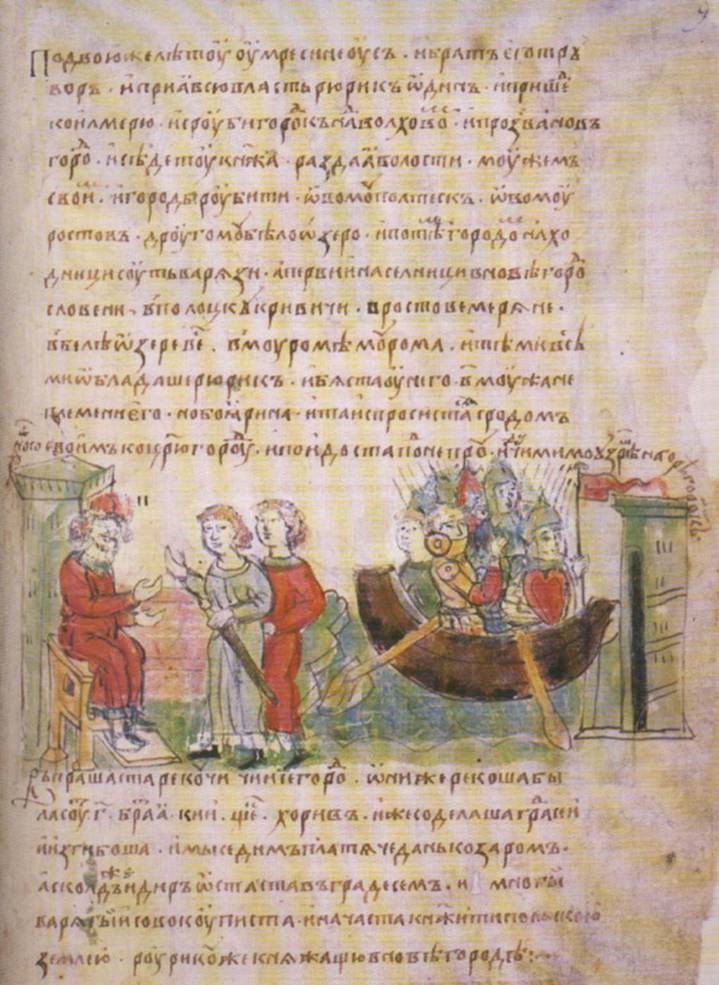 По двою же лѣтоу оумре синеоусъ · и братъ его трꙋ
воръ · и прия всю власть рюрикъ ѿдинъ · и прише
ко илмерю · и сроуби горо къ на волхово · и прозва новъ
горо · и сѣде тоу кнжа · раздаа волости · моужемъ
свои · и городы роубити · ѿвомоу полтескъ · ѿвомоу
ростовъ · дроугомоу бѣло ѿзеро · и по тѣ городо нахо
дници соуть варязи · а первии населници в новѣгоро
словени · в полоцкꙋ кривичи · в ростове меряне ·
в бѣлѣѿзере ве · в моуромѣ моурома · и тѣми всѣ
ми ѿбладаше рюрикъ · и бяста оу него · в̃ · моужа не
племени его · но боярина · и та испросиста с родом
своимъ ко црю горо · и поидоста по непро · идꙋчи мимо оузрѣ на го
въспрашаста рекочи чии се горо · ѿни же рекоша бы
ла соу · г҃ · брая · кии · ще · хоривъ · иже соделаша гра сии
и изгибоша · и мы седимъ платяче дань козаром ·
асколдъ же и диръ ѿстаста въ граде семъ · и многы
варягы совокоуписта · и начаста кнжити польскою
землею · роурикоу же княжащю в новѣгородѣ :~